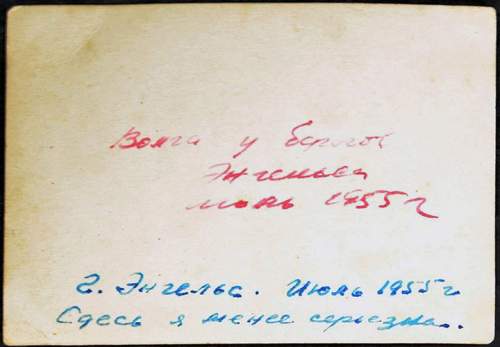 Волга у берегов
Энгельса
июль 1955 г
г. Энгельс. Июль 1955 г
Сдесь я менее серьезна..